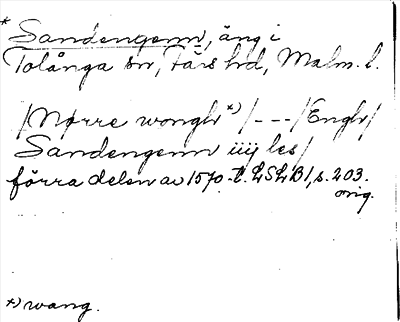 * Sandengenn, äng i
Tolånga sn, Färs hd, Malm. l.
/Nørre wongh *)/ - - - /Engh/
Sandengenn iiij les/
förra delen av 1570-t. LSLB1, s. 203.
orig.
*) wang.